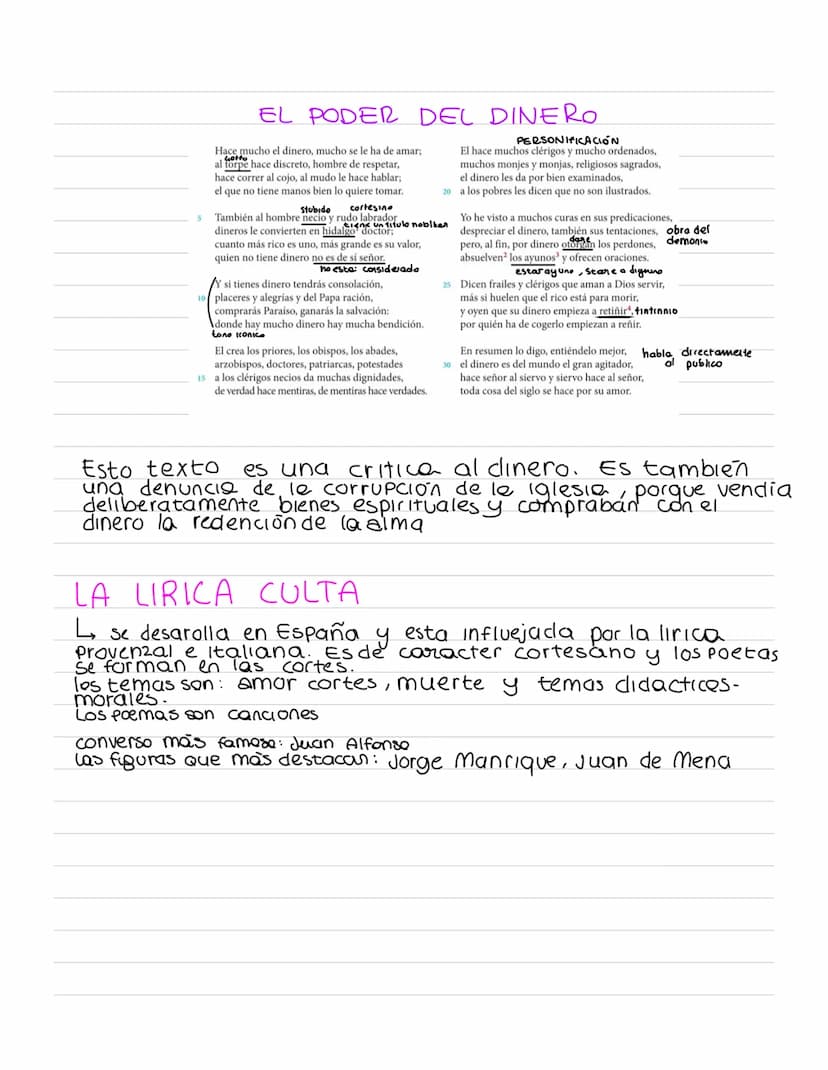 EL PODER DEL DINERO
Hace mucho el dinero, mucho se le ha de amar;
goffo
al torpe hace discreto, hombre de respetar,
hace correr al cojo, al mudo le hace hablar;
el que no tiene manos bien lo quiere tomar.
stubido cortesino
5 También al hombre necio y rudo labrador
tiene un titulo nobiliar
dineros le convierten en hidalgo¹ doctor;
cuanto más rico es uno, más grande es su valor,
quien no tiene dinero no es de sí señor.
no esta: considerado
Y si tienes dinero tendrás consolación,
10 placeres y alegrías y del Papa ración,
comprarás Paraíso, ganarás la salvación:
donde hay mucho dinero hay mucha bendición.
tono ironico
El crea los priores, los obispos, los abades,
arzobispos, doctores, patriarcas, potestades
15 a los clérigos necios da muchas dignidades,
de verdad hace mentiras, de mentiras hace verdades.
PERSONIFICACIÓN
El hace muchos clérigos y mucho ordenados,
muchos monjes y monjas, religiosos sagrados,
el dinero les da por bien examinados,
20 a los pobres les dicen que no son ilustrados.
Yo he visto a muchos curas en sus predicaciones,
despreciar el dinero, también sus tentaciones, obra del demonio
dare
pero, al fin, por dinero otorgan los perdones,
absuelven² los ayunos³ y ofrecen oraciones.
estar ayuno, stare a digiuno
25 Dicen frailes y clérigos que aman a Dios servir,
más si huelen que el rico está para morir,
y oyen que su dinero empieza a retiñir⁴, tintinnio
por quién ha de cogerlo empiezan a reñir.
En resumen lo digo, entiéndelo mejor, habla directamente al publico
30 el dinero es del mundo el gran agitador,
hace señor al siervo y siervo hace al señor,
toda cosa del siglo se hace por su amor.
Esto texto es una critica al dinero. Es también
una denuncia de la corrupción de la iglesia, porque vendia
deliberatamente bienes espirituales y compraban con el
dinero la redención de la alma
LA LIRICA CULTA
↳ se desarolla en España y esta influejada por la lirica
Provenzal e Italiana. Es de caracter cortesano y los Poetas
se forman en las cortes.
los temas son: amor cortes, muerte y temas didactices-
morales.
Los poemas son canciones
converso más famoso: Juan Alfonso
las figuras que más destacan: Jorge Manrique, Juan de Mena